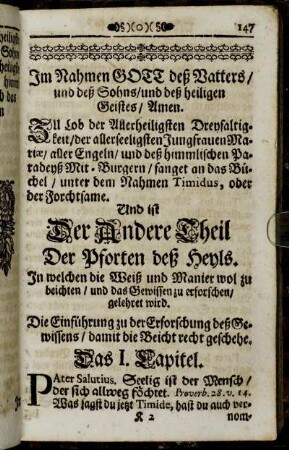 147
Im Nahmen GOTT deß Vatters/
und deß Sohns/und deß heiligen
Geistes/ Amen.
Zu Lob der Allerheiligsten Dreyfaltig-
keit/der allerseeligsten Jungfrauen Ma-
riæ/ aller Engeln/ und deß himmlischen Pa-
radeyß Mit-Burgern/ fanget an das Bü-
chel/ unter dem Nahmen Timidus, oder
der Forchtsame.
Und ist
Der Andere Theil
Der Pforten deß Heyls.
In welchen die Weiß und Manier wol zu
beichten/ und das Gewissen zu erforschen/
gelehret wird.
Die Einführung zu der Erforschung deß Ge-
wissens/ damit die Beicht recht geschehe.
Das I. Capitel.
PAter Salutius. Seelig ist der Mensch/
der sich allweg föchtet. Proverb. 28. v. 14.
Was sagst du jetzt Timide, hast du auch ver-
K 2 nom-